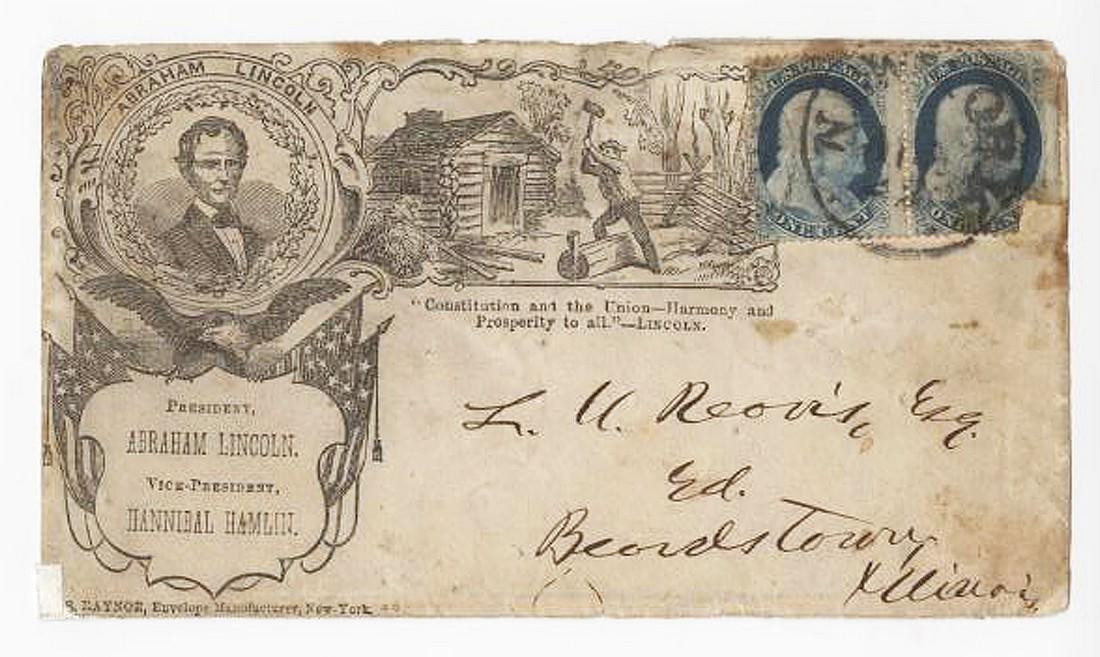 ABRAHAM LINCOLN
"Constitution and the Union—Harmony and
Prosperity to all."—LINCOLN.
PRESIDENT,
ABRAHAM LINCOLN.
VICE-PRESIDENT,
HANNIBAL HAMLIN.
L. U. Reavis, Esq.
Ed.
Beardstown
Illinois
S. RAYNOR, Envelope Manufacturer, New-York.
ONE CENT